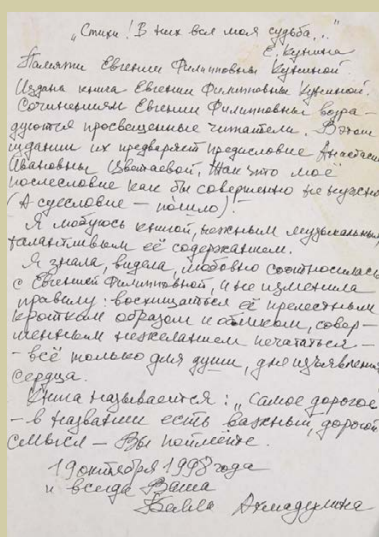 „Стихи! В них вся моя судьба..."
Е. Кунина
Памяти Евгении Филипповны Куниной
Издана книга Евгении Филипповны Куниной.
Сочинениям Евгении Филипповны возра-
дуются просвещенные читатели. В этом
издании их предваряет предисловие Анастасии
Ивановны Цветаевой, так что моё
послесловие как бы совершенно не нужно
(А суесловие – пошло)!
Я любуюсь книгой, нежным музыкальным,
талантливым её содержанием.
Я знала, видела, любовно соотносилась
с Евгенией Филипповной, и не изменила
правилу: восхищаться её прелестным
кротким образом и обликом, совер-
шенным нежеланием печататься –
– всё только для души, для изъявления
сердца.
Книга называется: „Самое дорогое
– в названии есть важный, дорогой
смысл – Вы поймёте.
19 октября 1998 года
и всегда Ваша
Белла Ахмадулина